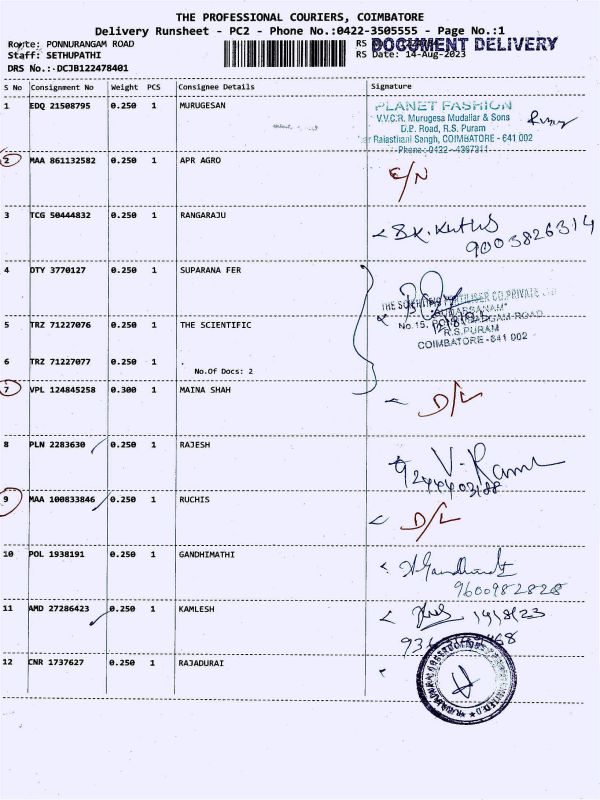 THE PROFESSIONAL COURIERS, COIMBATORE
Delivery Runsheet - PC2 - Phone No.:0422-3505555 - Page No.:1
Route: PONNURANGAM ROAD
RS
DOCUMENT DELIVERY
Staff: SETHUPATHI
RS Date: 14-Aug-2023
DRS No.: DCJB122478401
S No Consignment No Weight PCS Consignee Details Signature
1 EDQ 21508795 0.250 1 MURUGESAN
PLANET FASHION
V.V.C.R. Murugesa Mudaliar & Sons
D.P. Road, R.S. Puram
Rajasthani Sangh, COIMBATORE - 641 002
Phone: 0422 - 4367311
2 MAA 861132582 0.250 1 APR AGRO
E/N
3 TCG 50444832 0.250 1 RANGARAJU
9003826314
4 DTY 3770127 0.250 1 SUPARANA FER
THE SCIENTIFIC FERTILISER CO.PRIVATE LTD
5 TRZ 71227076 0.250 1 THE SCIENTIFIC
No.15, ROAD
R.S.PURAM
COIMBATORE - 641 002
6 TRZ 71227077 0.250 1
No.Of Docs: 2
7 VPL 124845258 0.300 1 MAINA SHAH
D/L
8 PLN 2283630 0.250 1 RAJESH
V. Rame
9 MAA 100833846 0.250 1 RUCHIS
D/L
10 POL 1938191 0.250 1 GANDHIMATHI
9600982828
11 AMD 27286423 0.250 1 KAMLESH
12 CNR 1737627 0.250 1 RAJADURAI